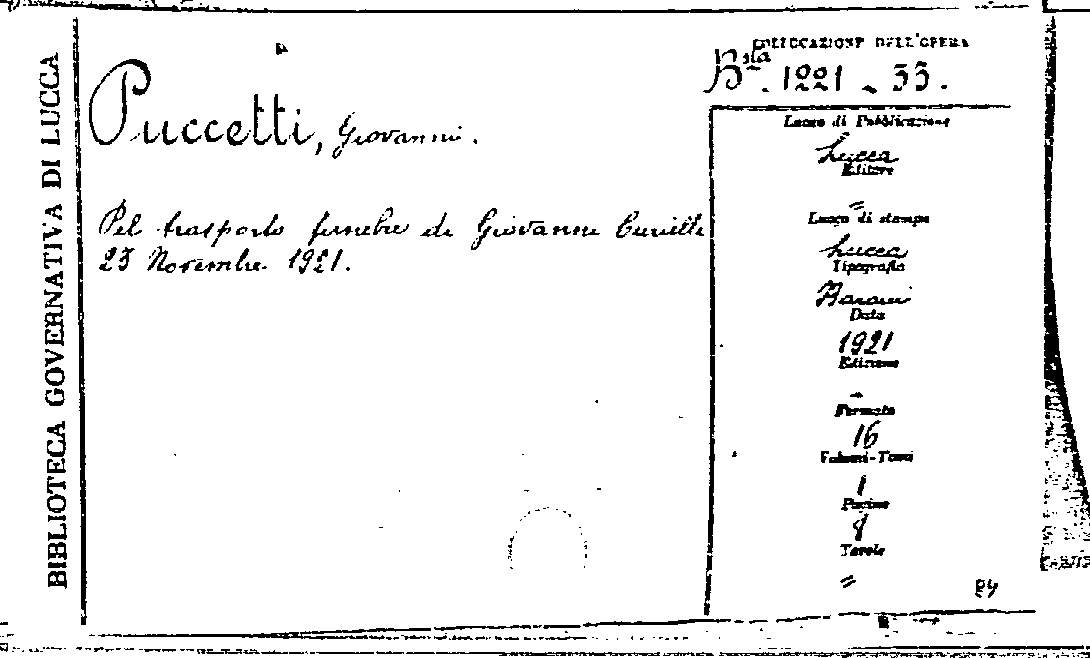 BIBLIOTECA GOVERNATIVA DI LUCCA
COLLOCAZIONE DELL'OPERA
Bsta. 1221 - 33.
Puccetti, Giovanni.
Pel trasporto funebre di Giovanni
23 Novembre 1921.
Luogo di Pubblicazione
Lucca
Editore
=
Luogo di stampa
Lucca
Tipografia
Baroni
Data
1921
Edizione
-
Formato
16
Volumi-Tomi
1
Pagine
8
Tavole
=
84